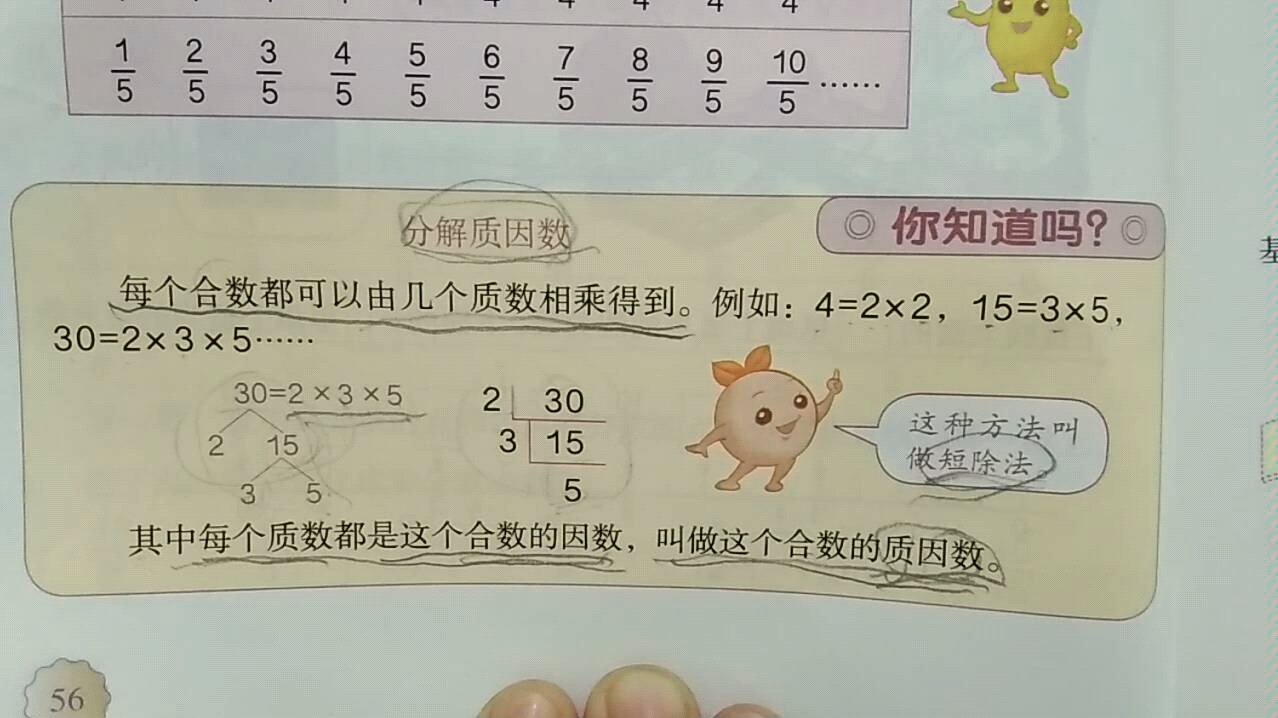 4 4 4 4 4
1/5 2/5 3/5 4/5 5/5 6/5 7/5 8/5 9/5 10/5 ……
你知道吗?
分解质因数
每个合数都可以由几个质数相乘得到。例如：4=2×2，15=3×5，
30=2×3×5……
30=2×3×5
2 15
3 5
2 30
3 15
5
这种方法叫
做短除法。
其中每个质数都是这个合数的因数，叫做这个合数的质因数。
56